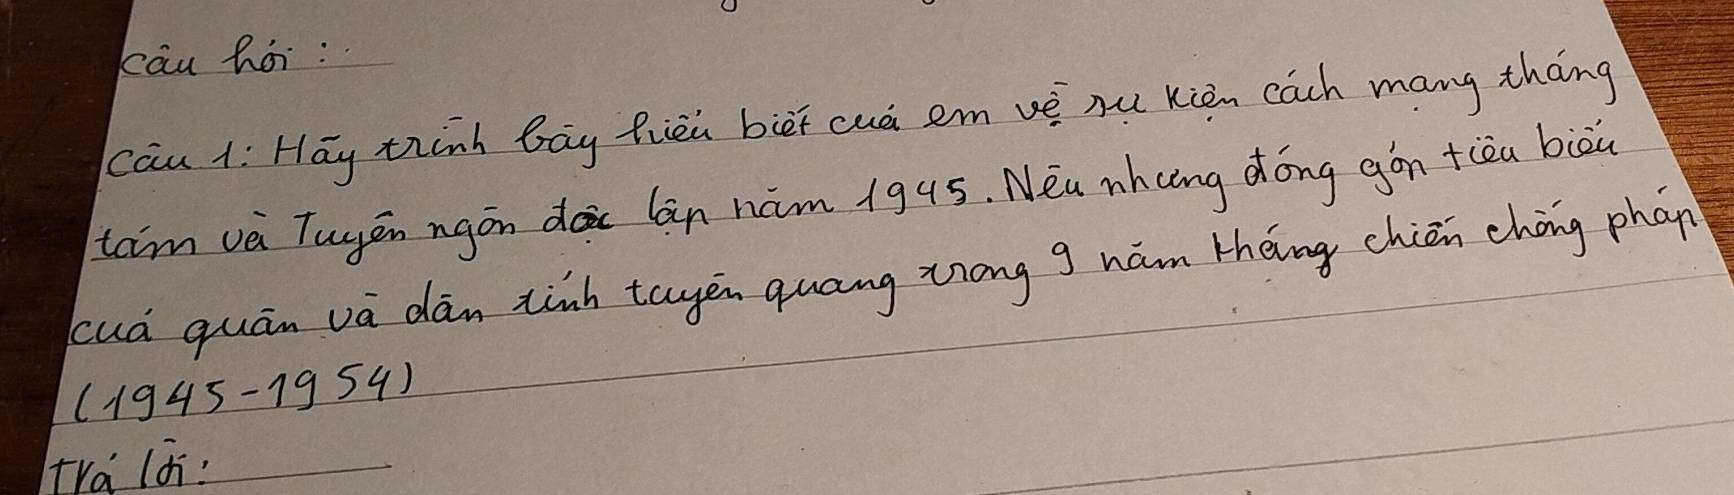 câu hỏi:
câu 1: Hãy trình bày hiểu biết của em về sự kiện cách mạng tháng
tám và Tuyên ngôn độc lập năm 1945. Nêu nhưng đóng góp tiêu biểu
của quân và dân tỉnh tuyên quang trong 9 năm kháng chiến chống pháp
(1945-1954)
trả lời: